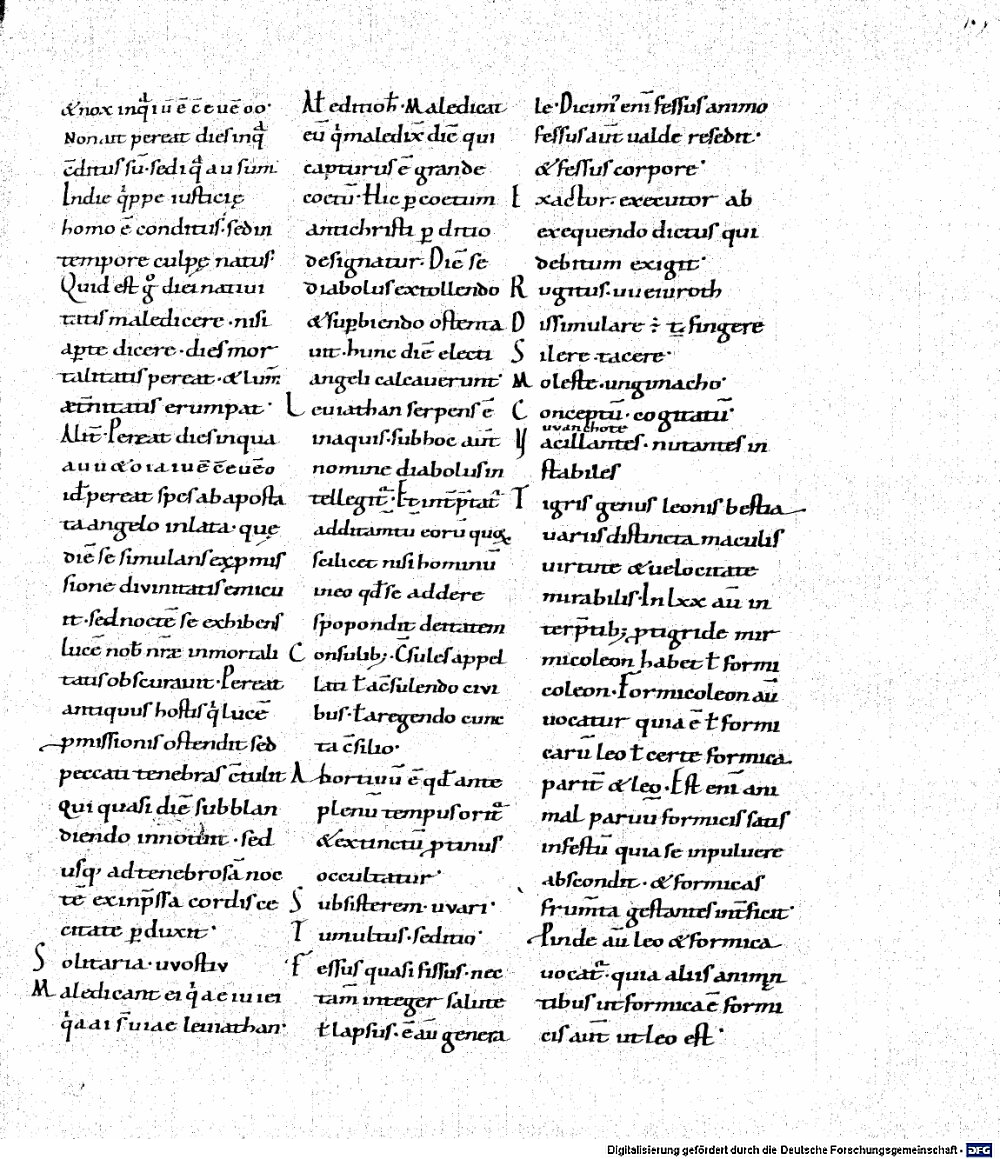 &nox inq̅ i u ē c̅ e u ē o o·
Non ait pereat dies inq
c̅ditus su̅· sed i q a u sum
Indie qppe iusticię
homo ē conditus· sed in
tempore culpę natus·
Quid est g̊ diei natiui
tatis maledicere· nisi
ap̱te dicere· dies mor
talitatis pereat· & lum̅
æt̅nitatis erumpat·
Alit̅· Pereat dies inqua
id̅ pereat spes ab aposta
ta angelo inlata· que
die̅ se simulans ex ꝓmis
sione diuinitatis emicu
it· sed nocte̅ se exhibens
luce̅ nob̅ nr̅æ inmortali
tatis obscurauit· Pereat
antiquus hostis q luce̅
ꝓmissionis ostendit sed
peccati tenebras c̅tulit
Qui quasi die̅ subblan
diendo innotuit· sed
usq; ad tenebrosa̅ noc
te̅ ex inp̅ssa cordis ce
citate ꝑduxit·
Solitaria· uvostiv
Maledicant ei q a e i u i e i
q a a i s̅ u i a e leuiathan·
Alt̅ editio h̅· Maledicat
eu̅ q maledix̅ die̅ qui
capturus ē grande
coetu̅· Hic ꝑ coetum
antichristi ꝑ ditio
designatur· Die̅ se
diabolus extollendo
& sup̱biendo ostenta
uit· hunc die̅ electi
angeli calcauerunt·
Leuiathan serpens ē
in aquis· sub hoc aut̅
nomine diabolus in
tellegit̅· Et int̅p̅tat̅
additam̅tu̅ eoru̅ quoꝝ
scilicet nisi hominu̅
in eo qd̅ se addere
spopondit deitatem
Consulib;· C̅sules appel
lati ł a c̅sulendo ciui
bus· ł a regendo cunc
ta c̅silio·
Abortiuu̅ ē qd̅ ante
plenu̅ tempus orit̅
& extinctu̅ ꝓtinus
occultatur·
Subsisterem· uvari·
Tumultus· seditio·
Fessus quasi fissus· nec
tam integer salute
ł lapsus· ē au̅ genera
le· Dicim' eni̅ fessus animo
fessus aut̅ ualde resedit·
& fessus corpore·
Exactor· executor ab
exequendo dictus qui
debitum exigit·
Rugitus· uueiuroth
Dissimulare ÷ t̅ fingere
Silere· tacere·
Moleste· ungimacho·
Conceptu̅· cogitatu̅·
uvanchote
Vacillantes· nutantes in
stabiles
Tigris genus leonis bestia
uariis distincta maculis
uirtute & uelocitate
mirabilis· In lxx au̅ in
terp̅tib; ꝓ tigride mir
micoleon habet ł formi
coleon· Formicoleon au̅
uocatur quia ē ł formi
caru̅ leo ł certe formica
parit̅ & leo· Est eni̅ ani
mal paruu̅ formicis satis
infestu̅ quia se in puluere
abscondit· & formicas
frum̅ta gestantes int̅ficit·
Pinde au̅ leo & formica
uocat̅· quia aliis animan
tibus ut formica ē formi
cis aut̅ ut leo est·
Digitalisierung gefördert durch die Deutsche Forschungsgemeinschaft - DFG